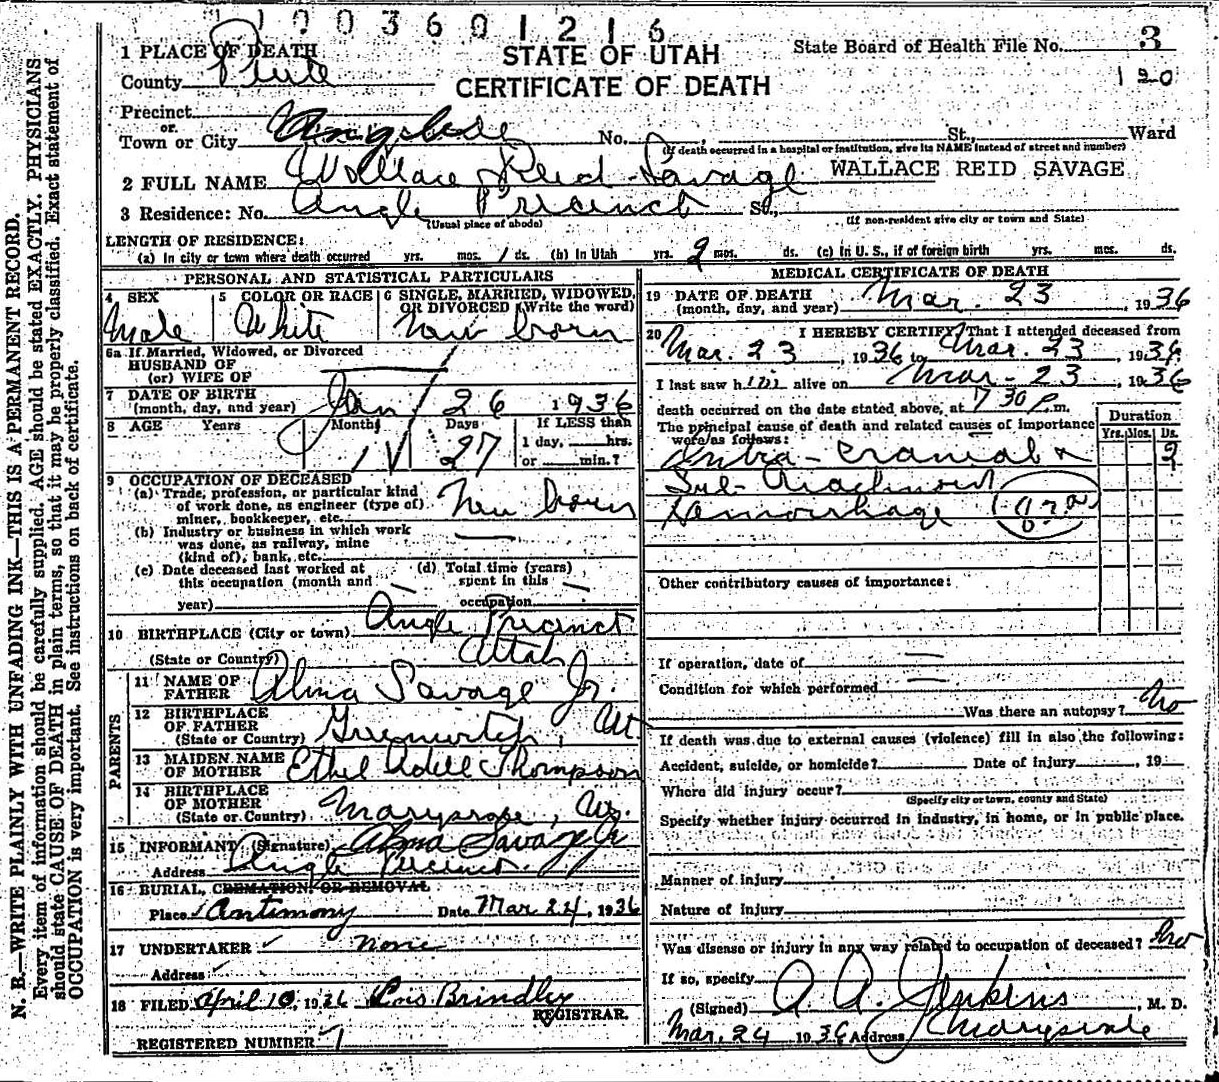 1003601216
STATE OF UTAH
CERTIFICATE OF DEATH
State Board of Health File No. 3
120
1 PLACE OF DEATH
County Piute
Precinct
or
Town or City Angle No. St., Ward
(If death occurred in a hospital or institution, give its NAME instead of street and number)
2 FULL NAME Wallace Reid Savage WALLACE REID SAVAGE
3 Residence: No. Angle Precinct St.,
(Usual place of abode) (If non-resident give city or town and State)
LENGTH OF RESIDENCE:
(a) In city or town where death occurred yrs. mos. 1 ds. (b) In Utah yrs. 2 mos. ds. (c) In U. S., if of foreign birth yrs. mos. ds.
PERSONAL AND STATISTICAL PARTICULARS
4 SEX Male
5 COLOR OR RACE White
6 SINGLE, MARRIED, WIDOWED, OR DIVORCED (Write the word) New born
6a If Married, Widowed, or Divorced
HUSBAND OF
(or) WIFE OF
7 DATE OF BIRTH
(month, day, and year) Jan 26 1936
8 AGE Years Months 1 Days 27 If LESS than
1 day, hrs.
or min.?
9 OCCUPATION OF DECEASED
(a) Trade, profession, or particular kind
of work done, as engineer (type of)
miner, bookkeeper, etc. New born
(b) Industry or business in which work
was done, as railway, mine
(kind of), bank, etc.
(c) Date deceased last worked at
this occupation (month and
year)
(d) Total time (years)
spent in this
occupation
10 BIRTHPLACE (City or town) Angle Precinct
(State or Country) Utah
PARENTS
11 NAME OF
FATHER Alma Savage Jr.
12 BIRTHPLACE
OF FATHER
(State or Country) Greenwich, Ut
13 MAIDEN NAME
OF MOTHER Ethel Adell Thompson
14 BIRTHPLACE
OF MOTHER
(State or Country) Marysvale, Ut.
15 INFORMANT (Signature) Alma Savage Jr
Address Angle Precinct.
16 BURIAL, CREMATION, OR REMOVAL
Place Antimony Date Mar 24, 1936
17 UNDERTAKER none
Address
18 FILED April 10, 1936 Lois Brindley
REGISTRAR.
REGISTERED NUMBER 1
MEDICAL CERTIFICATE OF DEATH
19 DATE OF DEATH
(month, day, and year) Mar. 23 1936
20 I HEREBY CERTIFY, That I attended deceased from
Mar. 23, 1936 to Mar. 23, 1936
I last saw him alive on Mar. 23 1936
death occurred on the date stated above, at 7 30 P. m.
The principal cause of death and related causes of importance
were as follows:
Duration
Yrs. Mos. Ds.
Intra-cranial &
Sub-Arachnoid
Hemorrhage
Other contributory causes of importance:
If operation, date of
Condition for which performed
Was there an autopsy? No
If death was due to external causes (violence) fill in also the following:
Accident, suicide, or homicide? Date of injury , 19
Where did injury occur?
(Specify city or town, county and State)
Specify whether injury occurred in industry, in home, or in public place.
Manner of injury
Nature of injury
Was disease or injury in any way related to occupation of deceased? No
If so, specify
(Signed) A A. Jenkins, M. D.
Mar. 24 1936 Address Marysvale
N. B.—WRITE PLAINLY WITH UNFADING INK—THIS IS A PERMANENT RECORD.
Every item of information should be carefully supplied. AGE should be stated EXACTLY. PHYSICIANS
should state CAUSE OF DEATH in plain terms, so that it may be properly classified. Exact statement of
OCCUPATION is very important. See instructions on back of certificate.